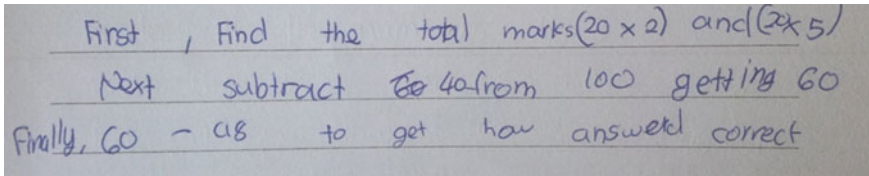 First, Find the total marks(20 x 2) and (20x5)
Next subtract 40 from 100 getting 60
Finally, 60 - 48 to get how answerd correct